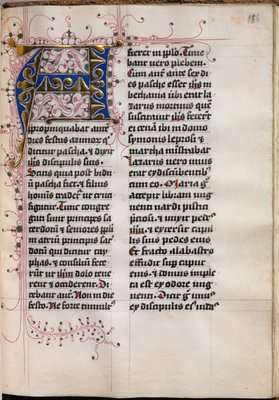 Appropinquabat aute
dies festus azimor qͥ
dicitur pascha. & dixit
ihs discipulis suis.
Scitis quia post biduũ
pascha fiet. & filius
hominis tradet ut cruci
figatur. Tunc congre
gati sunt principes sa
cerdotũ & seniores ppli
in atriũ principis sac
dotũ qui dicitur cay
phas. & consiliũ fece
rũt ut ihm dolo tene
rent & occiderent. Di
cebant aut. Non in die
festo. Ne forte tumult
fieret in pplo. Time
bant vero plebem.
Cum aut ante sex di
es pasche esset ihs in
bethania ubi erat la
zarus mortuus quē
suscitavit ihs. fecert
ei cenā ibi in domo
symonis leprosi &
martha ministrabat
Lazarus vero unus
erat ex discubentib
cum eo. Maria g
accepit libram ung
nardi pisti
preciosi. & unxit pede
ihu. & extersit capil
lis suis pedes eius
Et fracto alabastro
effudit sup caput
eius. & domus imple
ta est ex odore ungu
enti. Dixit g unus
ex discipulis ei